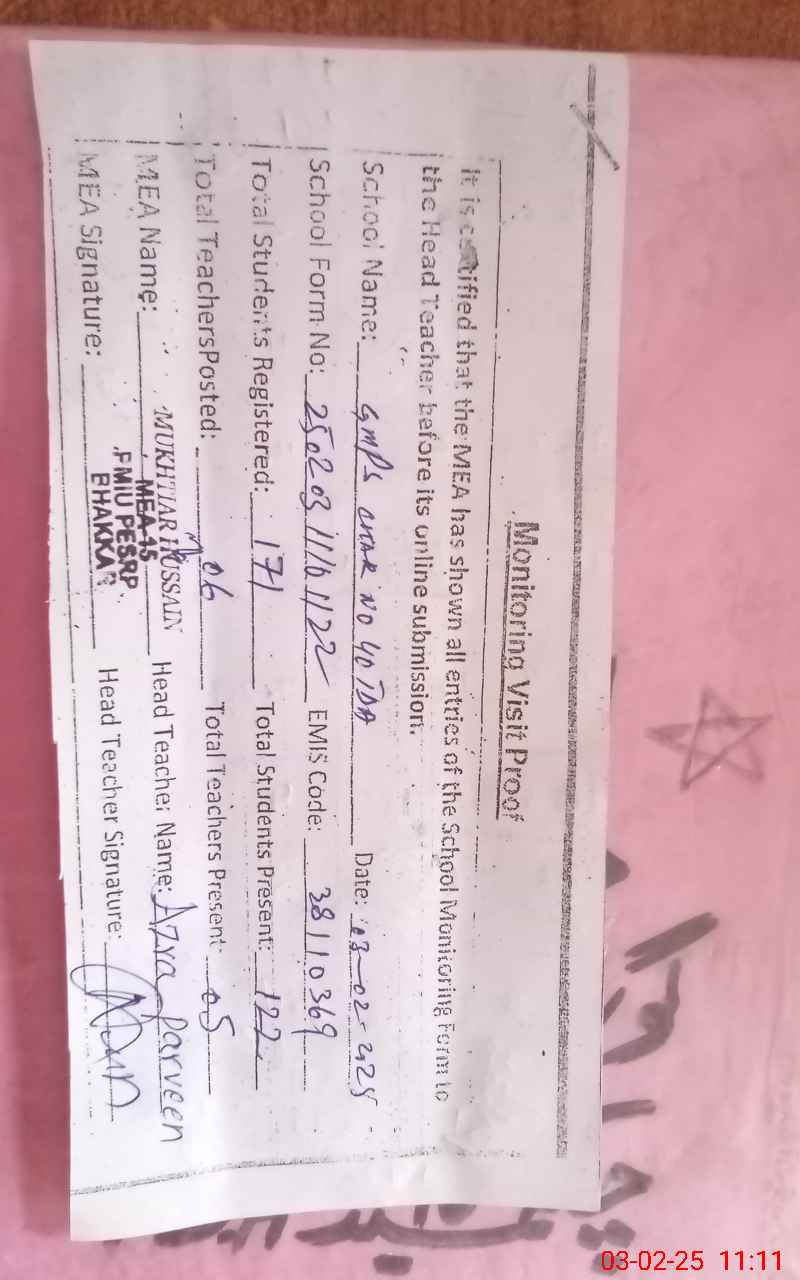 Monitoring Visit Proof
It is certified that the MEA has shown all entries of the School Monitoring Form to
the Head Teacher before its online submission.
School Name: GMPS CHAK NO 40 TDA Date: 03-02-2025
School Form No: 25020311161122 EMIS Code: 38110369
Total Students Registered: 171 Total Students Present: 122
Total TeachersPosted: 06 Total Teachers Present: 05
MEA Name: MUKHTIAR HUSSAIN Head Teacher Name: Azra Parveen
MEA-15
PMIU PESRP
BHAKKAR
MEA Signature: Head Teacher Signature:
03-02-25 11:11